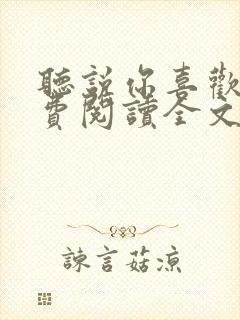 聽說你喜歡
費閱讀全文
諫言菇涼